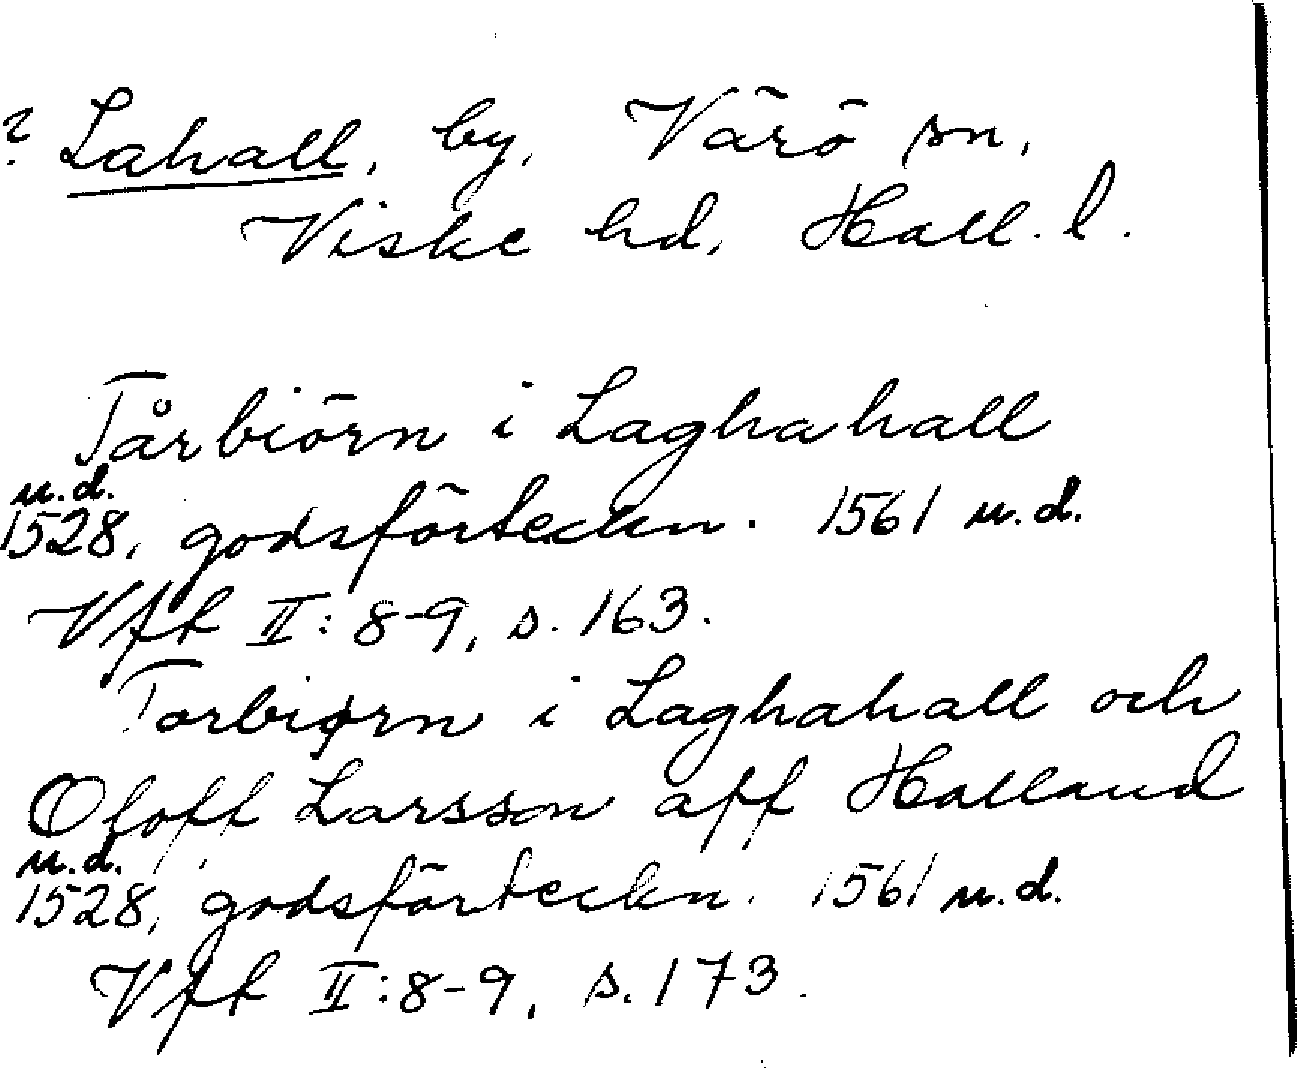 ? Lahall, by, Värö sn,
Viske hd, Hall. l.
Tårbiörn i Laghahall
u.d.
1528, godsförteckn. 1561 u.d.
Vff II: 8-9, s. 163.
Torbiørn i Laghahall och
Oloff Larsson aff Halland
u.d.
1528, godsförteckn. 1561 u.d.
Vff II: 8-9, s. 173.